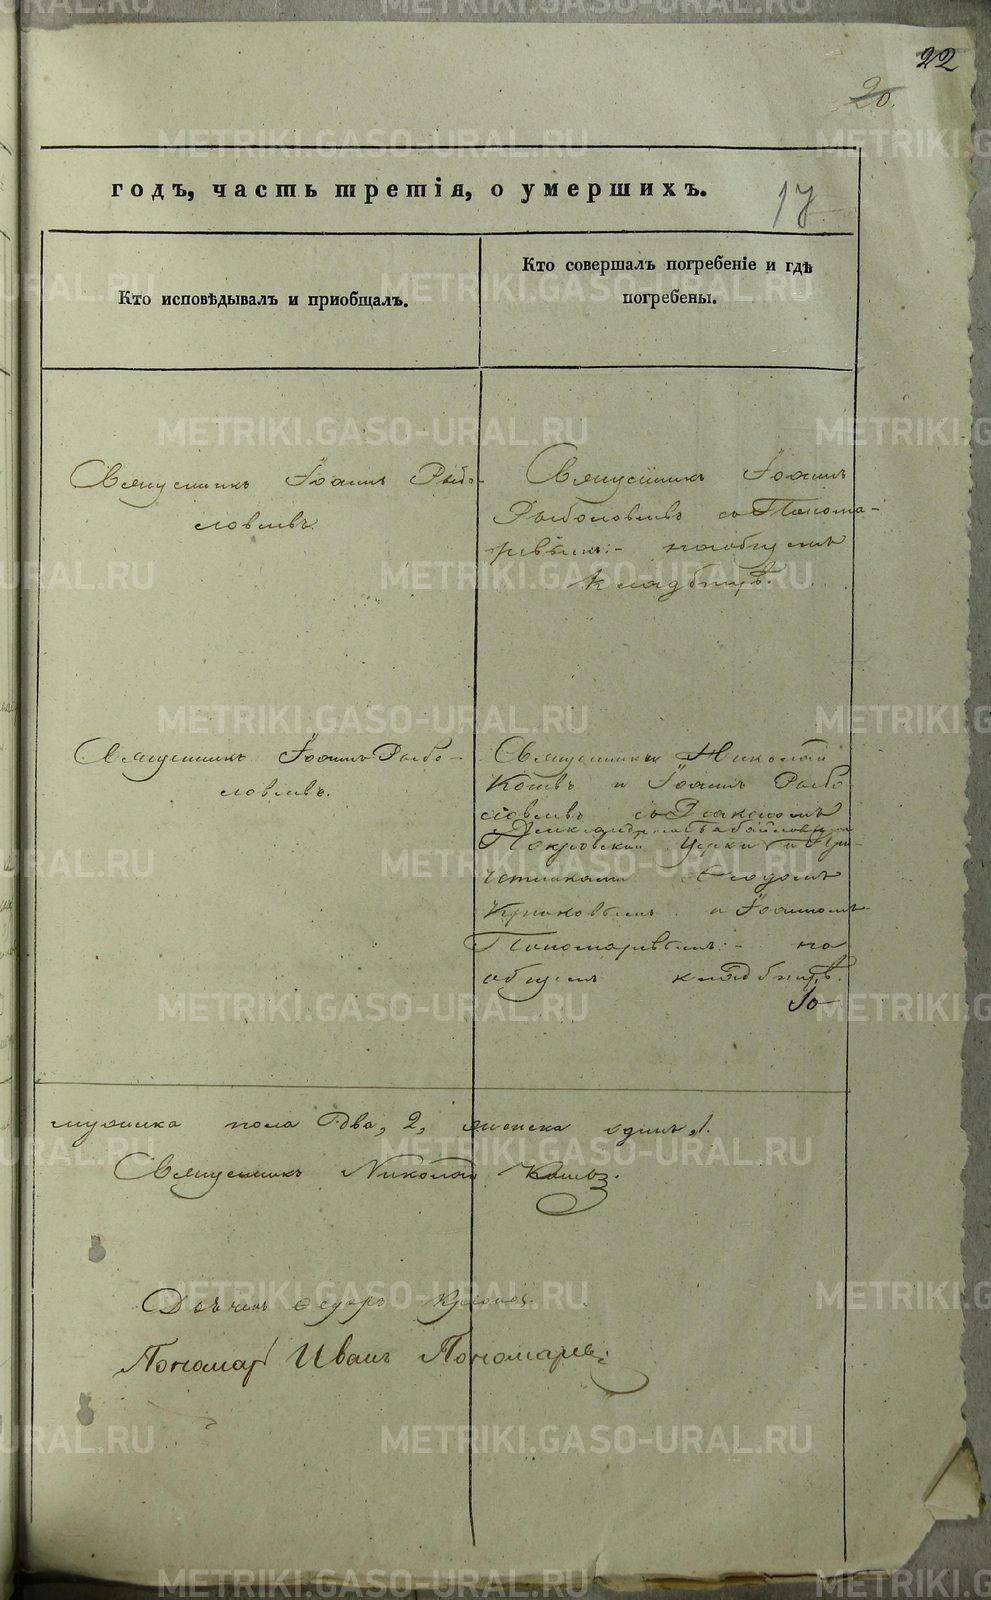 22
20.
годъ, часть третія, о умершихъ.
17
Кто исповѣдывалъ и приобщалъ.
Кто совершалъ погребеніе и гдѣ
погребены.
Священникъ Іоаннъ Рыбо-
ловлевъ.
Священникъ Іоаннъ
Рыболовлевъ съ Понома-
ревымъ:- на общемъ
кладбищѣ.
Священникъ Іоаннъ Рыбо-
ловлевъ.
Священники Николай
и Іоаннъ Рыбо
ловлевъ съ Діакономъ
Покровской Церкви и При-
четниками Ѳеодоромъ
и Іоанномъ
Пономаревымъ:- на
общемъ кладбищѣ.
мужеска пола два, 2, женска одинъ, 1.
Священникъ Николай
Дьячекъ Ѳедоръ
Пономарь Иванъ Пономаревъ
METRIKI.GASO-URAL.RU